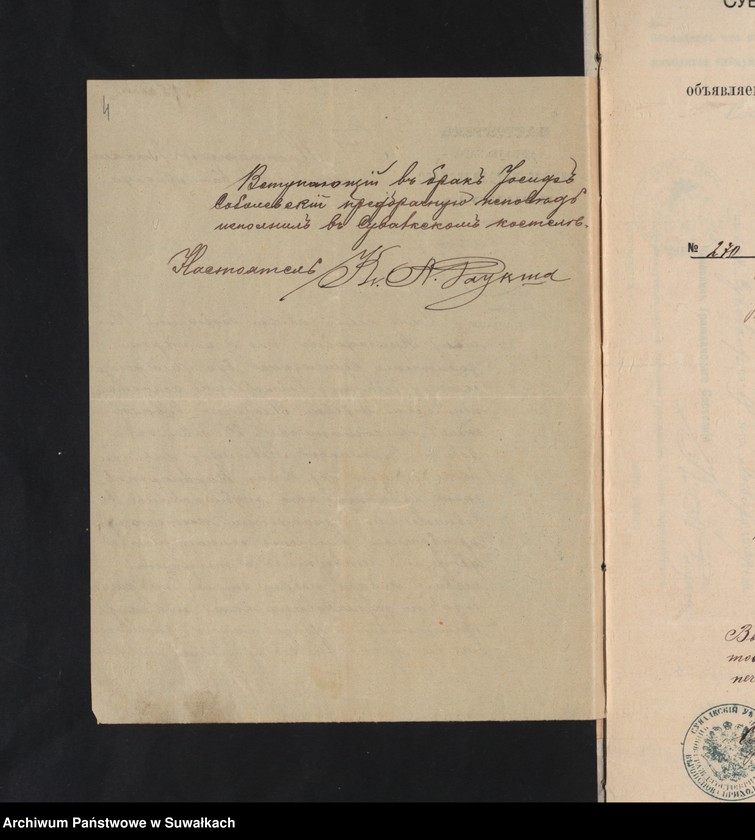 4
Вступающій въ бракъ Іосифъ
Соболевскій предбрачную исповѣдь
исполнилъ въ Сувалкскомъ костелѣ.
Настоятель Кс. А. Раукта
СУВ
объявляе
№ 270
Archiwum Państwowe w Suwałkach